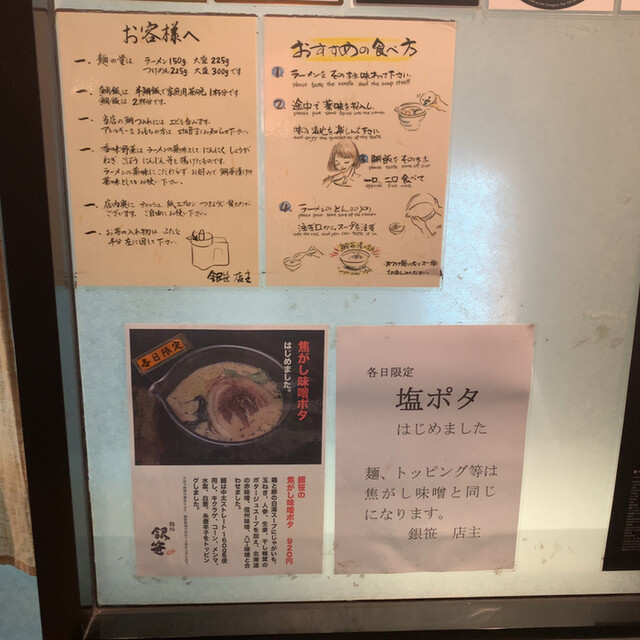 お客様へ
一、麺の量は ラーメン150g 大盛225g
つけめん225g 大盛300gです
一、鯛飯は 半鯛飯で家庭用茶碗1杯分です
鯛飯は 2杯分です。
一、当店の鯛つみれには えびを含みます。
アレルギーをお持ちの方は
一、香味野菜は ラーメンの薬味として にんにく しょうが
ねぎ ごぼう にんじん 等を揚げたものです。
ラーメンの薬味にこだわらず お好みで 鯛茶漬けの
薬味としても お使い下さい。
一、店内奥に ティッシュ、紙エプロン つまようじ 等
ございます。ご自由にお使い下さい。
一、お茶の入れ物は ふたを
半分 左に回して下さい。
銀笹 店主
おすすめの食べ方
1. ラーメンを そのまま味わって下さい。
please taste the noodle and the soup itself
2. 途中で 薬味を投入し
味の変化を楽しんで下さい
鯛飯を そのまま
一口、二口 食べて
4. ラーメンのどんぶりの
注ぎ口からスープを注ぎ
各日限定
焦がし味噌ポタ
はじめました。
銀笹の
焦がし味噌ポタ 920円
鶏と豚の白湯スープにじゃがいも、
玉ねぎ、人参、生姜、干し椎茸の
ポタージュスープを加え、北海道
の赤味噌、信州味噌、八丁味噌と合
わせました。
麺は中太ストレート160gを使
用し、キクラゲ、コーン、メンマ、
水菜、白葱、糸唐辛子をトッピン
グしました。
麺処
銀笹
各日限定
塩ポタ
はじめました
麺、トッピング等は
焦がし味噌と同じ
になります。
銀笹 店主